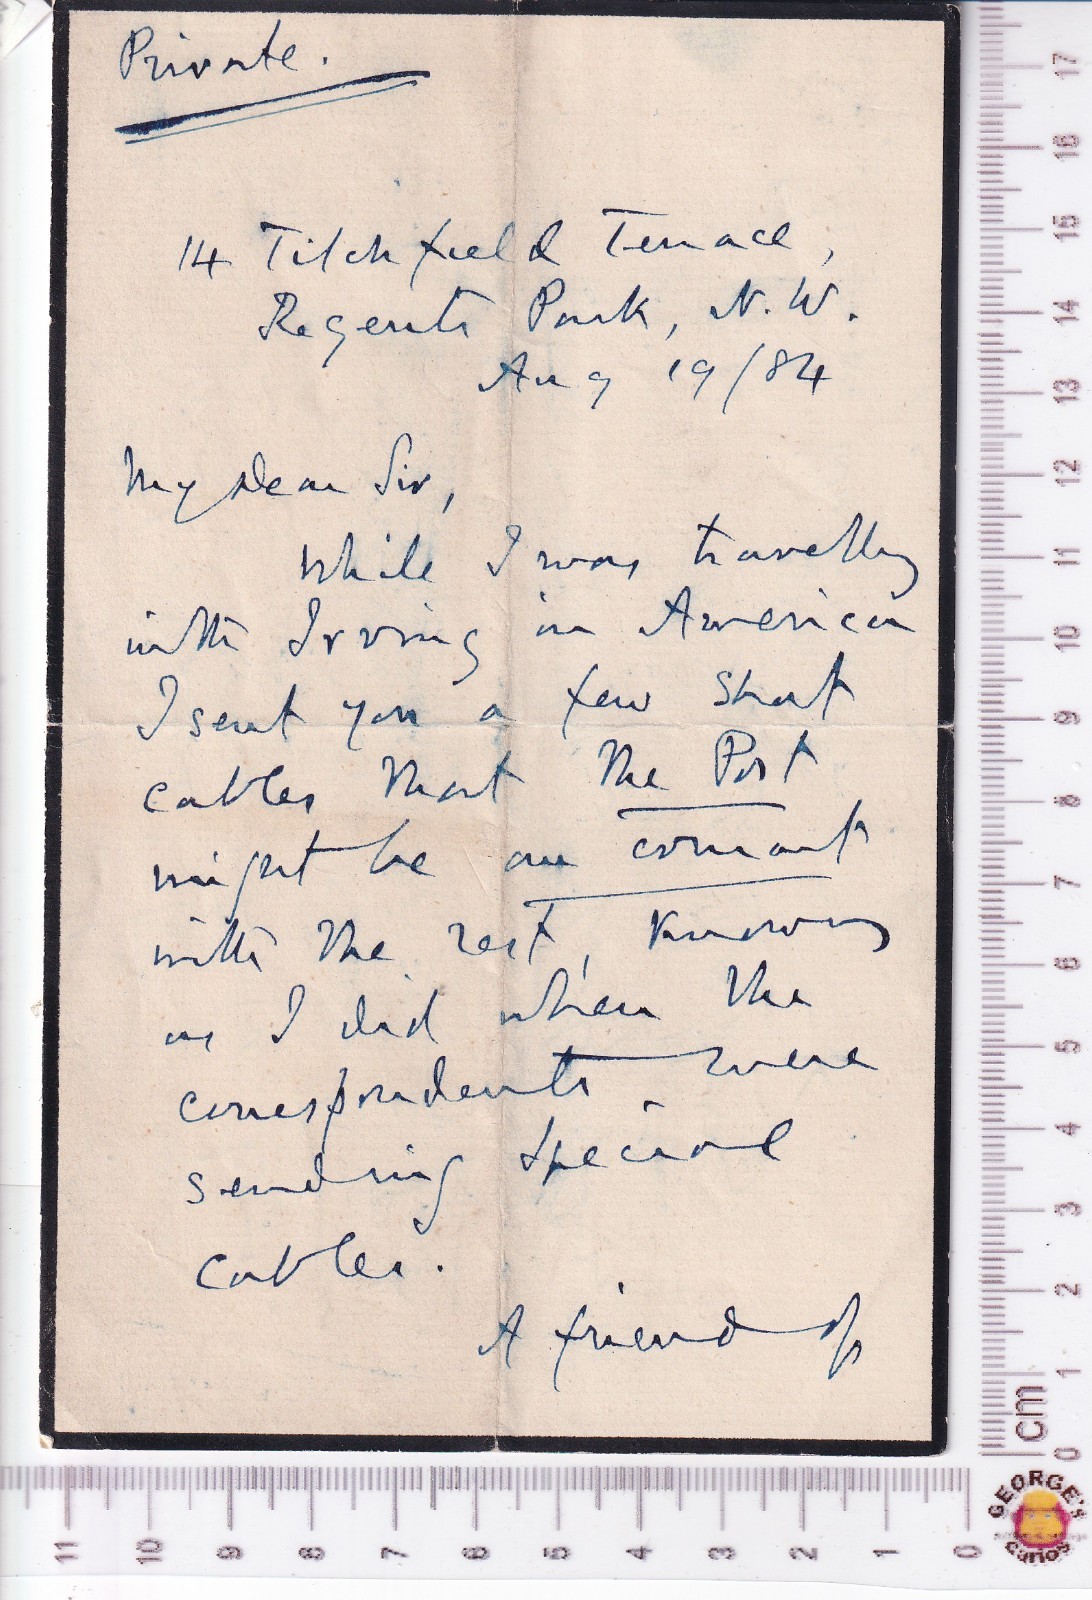 Private.
14 Titchfield Terrace,
Regents Park, N.W.
Aug 19/84
My dear Sir,
While I was travelling
with Irving in America
I sent you a few short
cables that the Post
might be au courant
with the rest, knowing
as I did when the
correspondents were
sending special
cables.
A friend of
17
16
15
14
13
12
11
10
9
8
7
6
5
4
3
2
1
0
cm
11 10 9 8 7 6 5 4 3 2 1 0
GEORGE'S
curios